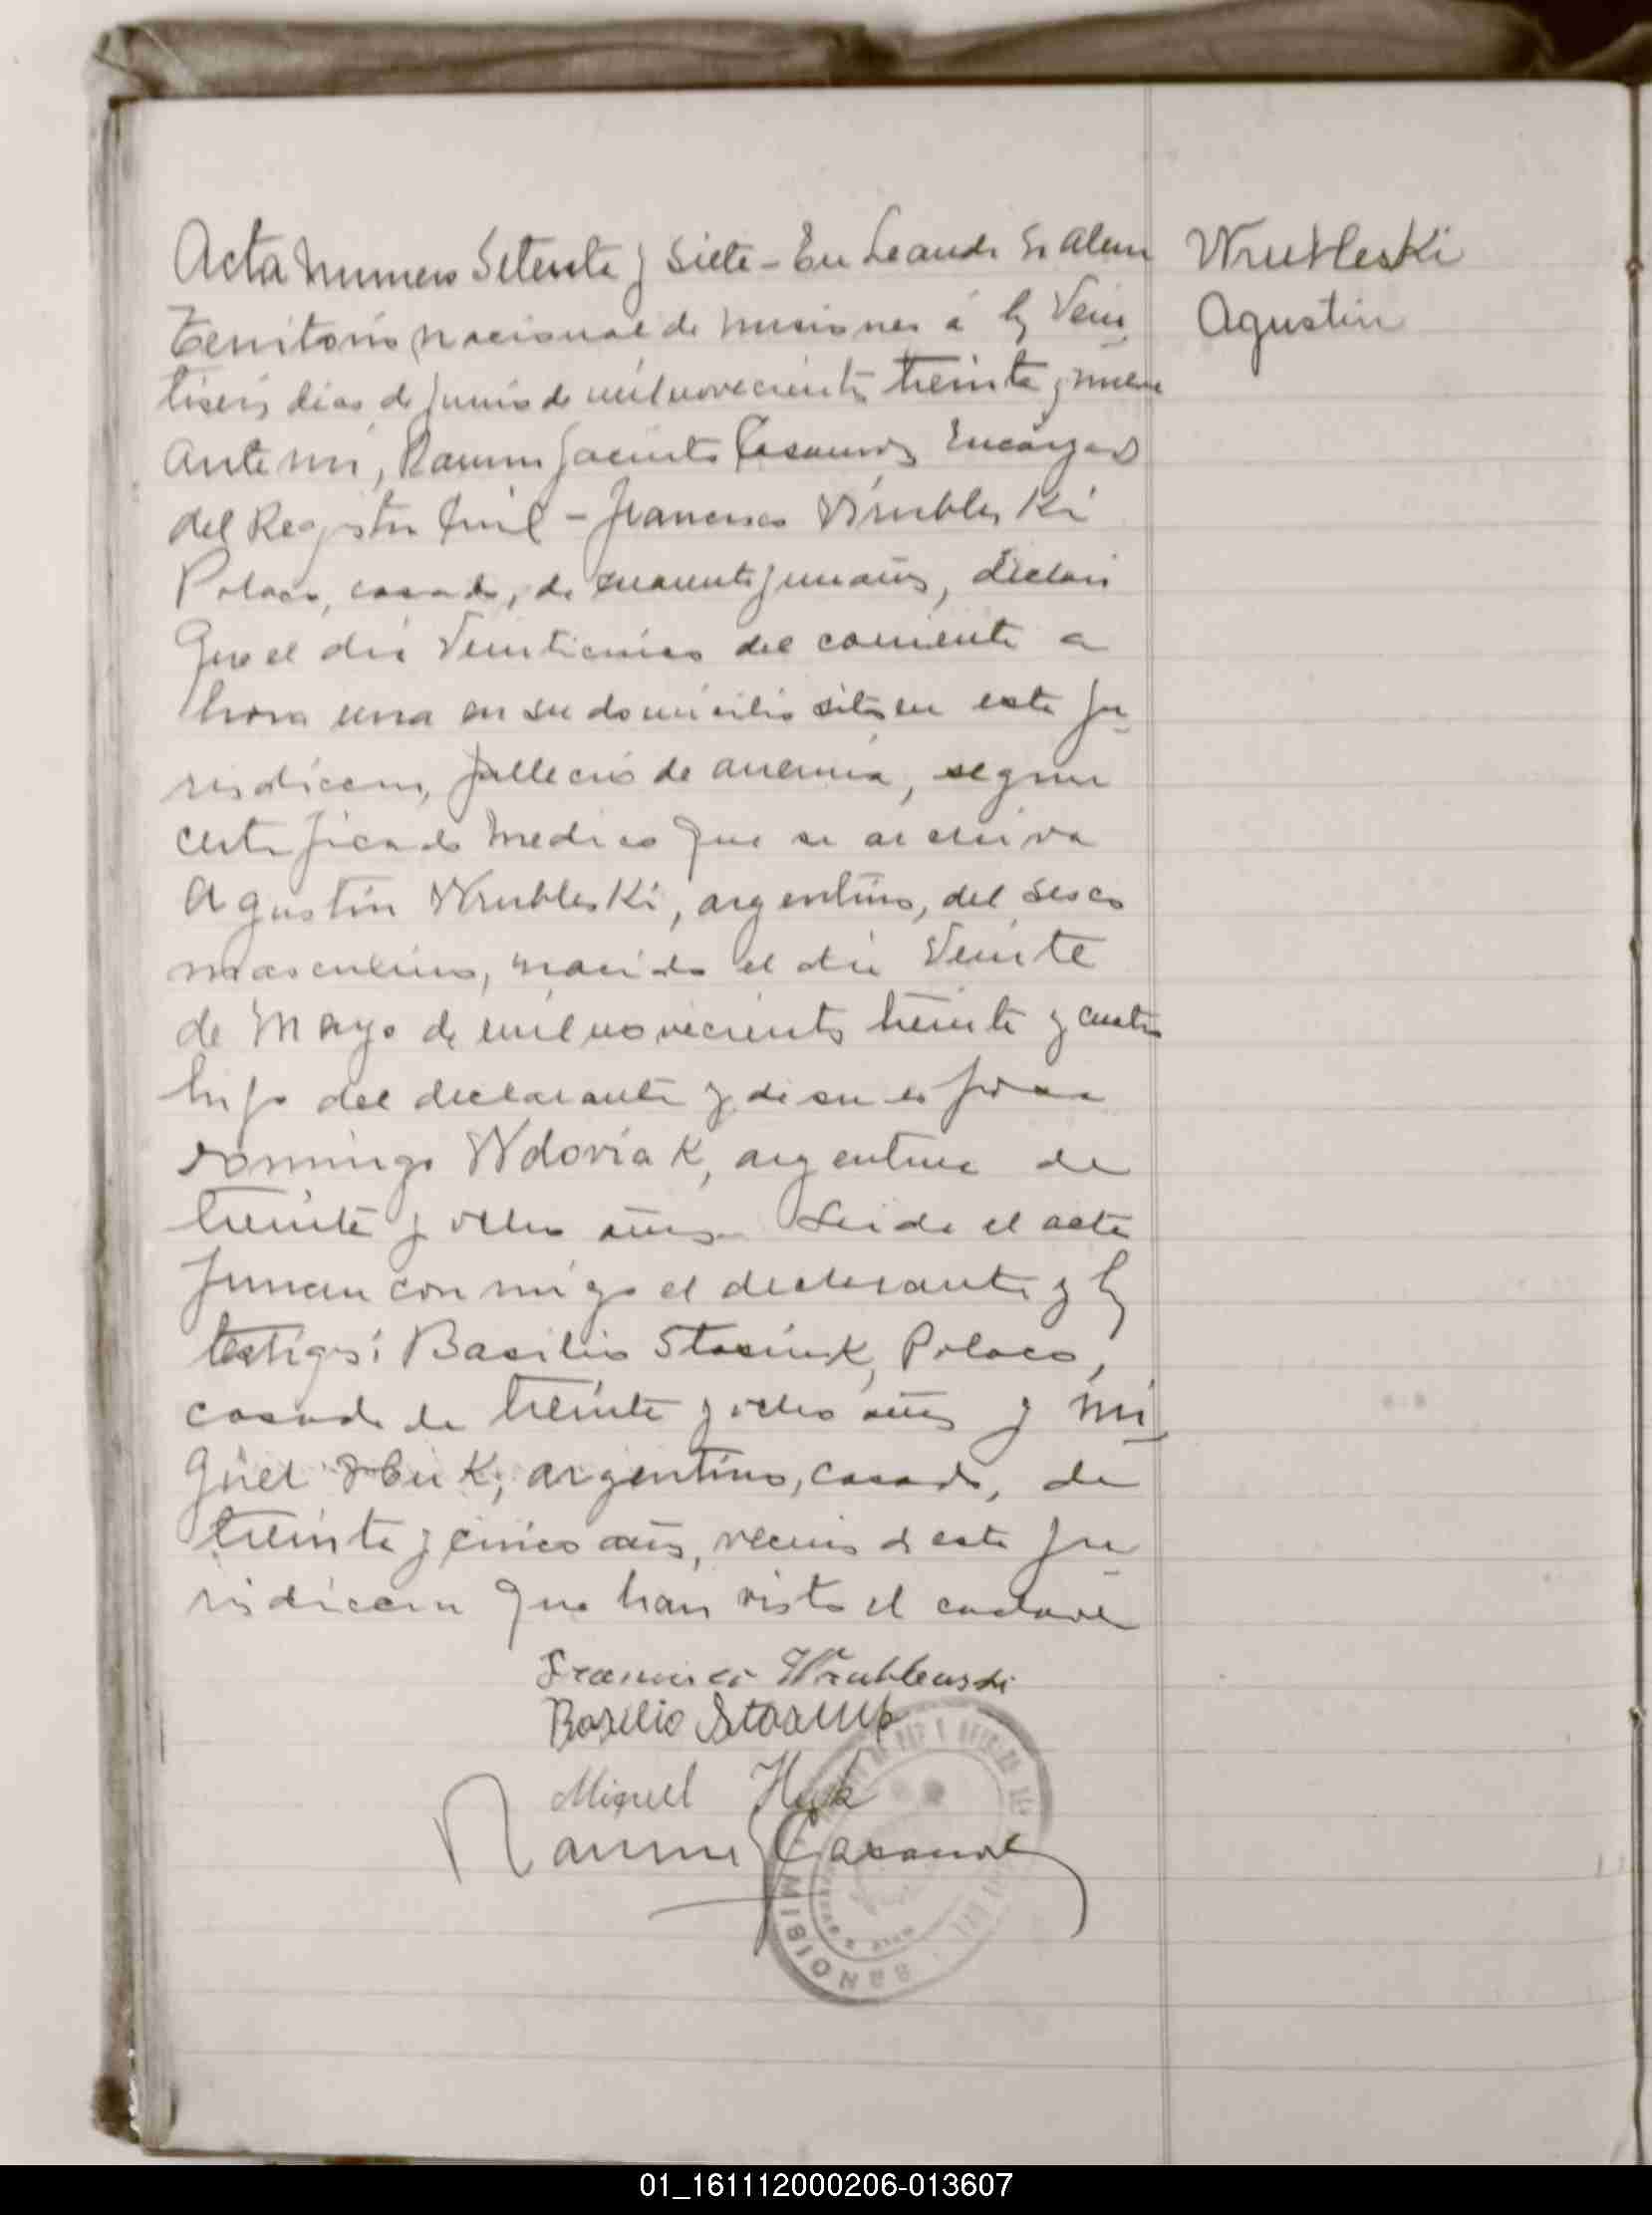 Acta numero Setenta y Siete - En Leandro N Alem
Territorio nacional de misiones á los Vein
tiseis dias de Junio de mil novecientos treinta y nueve
Ante mi, Ramon Jacinto Casanova Encargado
del Registro Civil - Francisco Wrubleski
Polaco, casado, de cuarenta y un años, declaró
Que el dia Veinticinco del corriente a
hora una en su domicilio sito en esta ju
risdiccion, fallecio de anemia, segun
certificado medico que se archiva
Agustin Wrubleski, argentino, del sesco
masculino, nacido el dia Veinte
de Mayo de mil novecientos treinta y cuatro
hijo del declarante y de su esposa
Dominga Wdoviak, argentina de
treinta y ocho años Leida el acta
firman conmigo el declarante y los
testigos: Basilio Stasiuk, Polaco,
casado de treinta y ocho años y Mi
guel Huk, argentino, casado, de
treinta y cinco años, vecinos de esta ju
risdiccion que han visto el cadaver
Francisco Wrublewski
Basilio
Miguel Huk
Ramon J Casanova
MISIONES
Wrubleski
Agustin
01_161112000206-013607